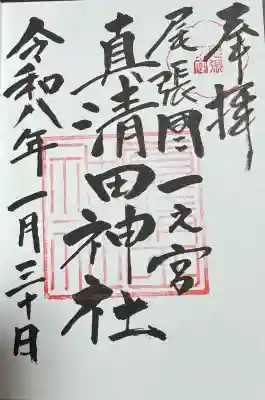 奉拝
尾張國一之宮
真清田神社
令和八年一月三十日